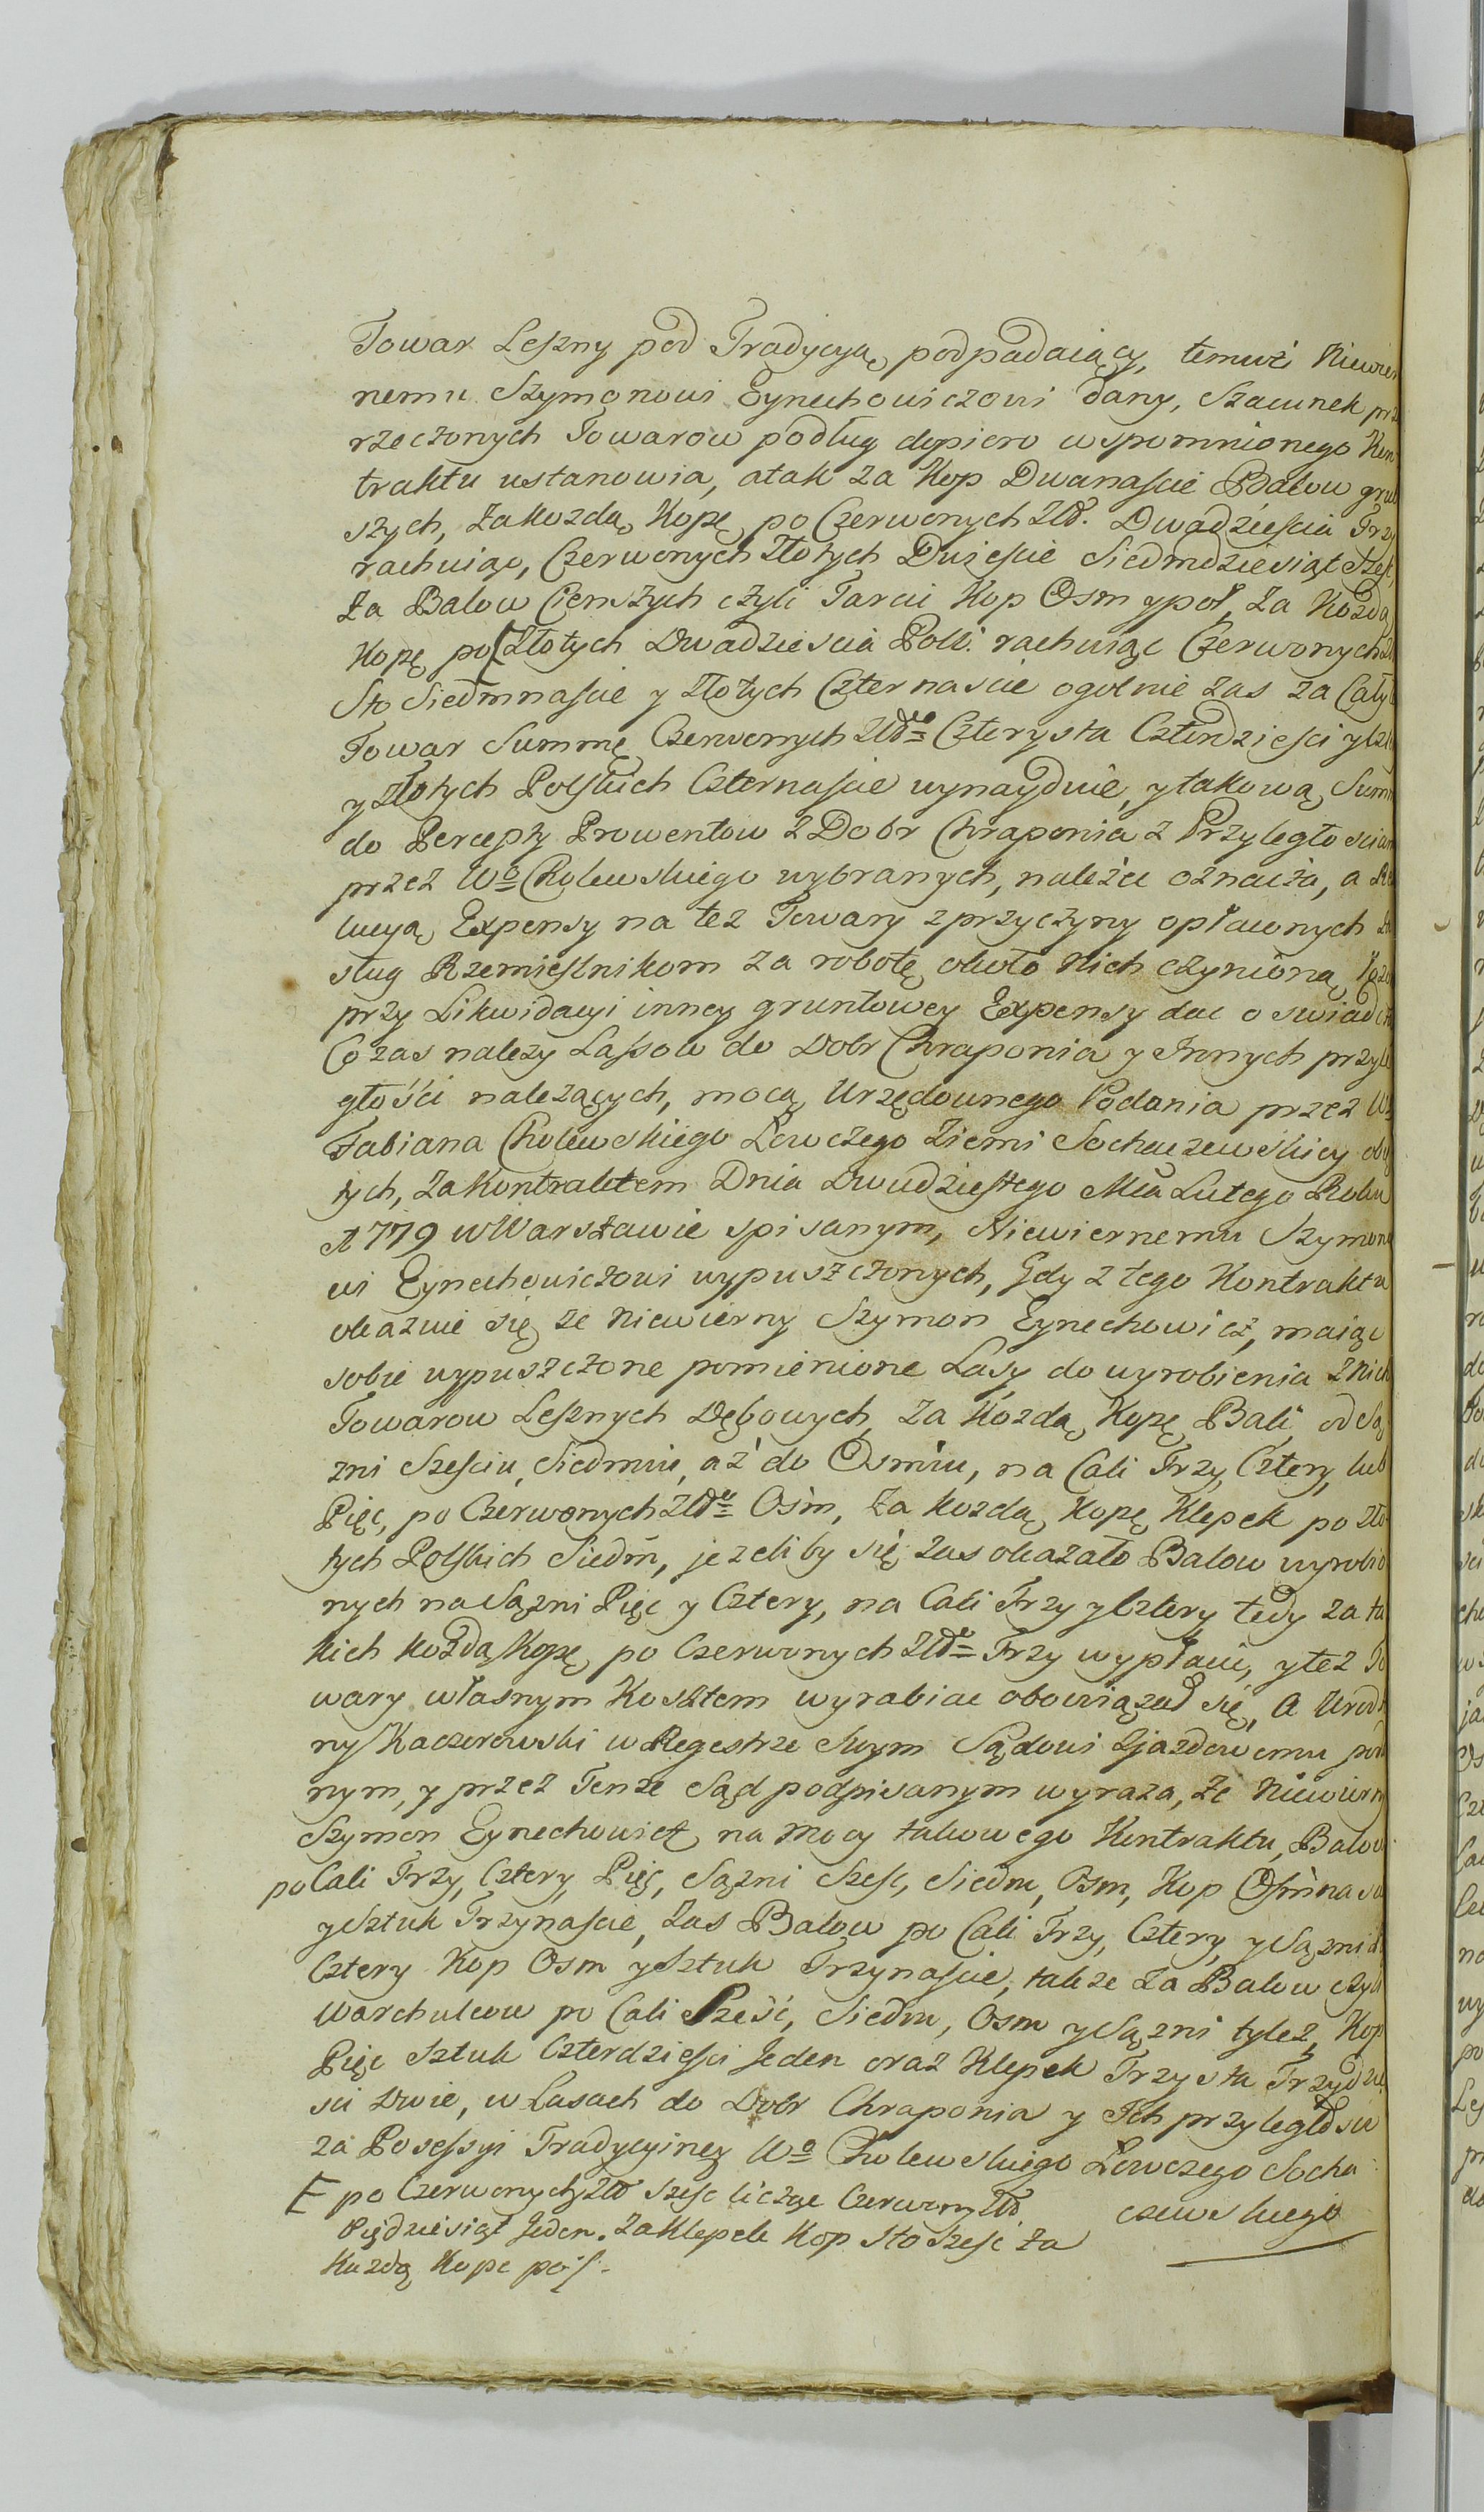 Towar Leszny pod Tradycyą podpadaiący, temuż Niewier
nemu Szymonowi Eynechowiczowi dany, Szacunek prze
rzeczonych Towarow podług dopiero wspomnionego Kon
traktu ustanowia, atak za Kop Dwanaście Balow grub
szych, za kozdą Kopę po Czerwonych Złł. Dwadzieścia Trzy
rachuiąc, Czerwonych Złotych Dwieście Siedmdziesiąt Sześć,
za Balow Cienszych czyli Tarcic Kop Osm ypoł, za Kozdą
Kopę po [Złotych Dwadziescia Polł. rachuiąc Czerwonych Zł
Sto Siedmnaście y Złotych Czternaście ogolnie zas za Cały
Towar Summę Czerwonych Złłch Czterysta Czterdzieści y
y Złotych Polskich Czternaście wynayduie, y takową Sum
do Percepty Prowentow z Dobr Chraponia z Przyległościam
przez Wo Cholewskiego wybranych, należeć oznacza, a
lucyą Expensy na też Towary z przyczyny opłaconych
sług Rzemieslnikom za robotę około Nich czynioną,
przy Likwidacyi inney gruntowey Expensy dac oswiadcza
Co zas należy Lassow do Dobr Chraponia y Innych przyle
głości należących, mocą Urzędownego Podania przez W
Fabiana Cholewskiego Łowczego Ziemi Sochaczewskiey obię
tych, za Kontraktem Dnia Dwudziestego Mca Lutego Roku
1779 w Warszawie spisanym, Niewiernemu Szymono
wi Eynechowiczowi wypuszczonych, Gdy z tego Kontraktu
okazuie się ze Niewierny Szymon Eynechowicz, maiąc
sobie wypuszczone pomienione Lasy do wyrobienia z Nich
Towarow Lesznych Dębowych, za Kozdą Kopę Bali od Są
zni Sześciu, Siedmiu, aż do Osmiu, na Cali Trzy, Cztery, lub
Pięć, po Czerwonych Złłch Osm, za kozdą Kopę Klepek po Zło
tych Polskich Siedm, jezeliby się zas okazało Balow wyrobio
nych na Sązni Pięć y Cztery, na Cali Trzy y Cztery tedy za ta
kich kozdą Kopę po Czerwonych Złłch Trzy wypłacić, y też To
wary własnym Kosztem wyrabiac obowiązał się, a Urodzo
ny Kaczorowski w Regestrze Swym Sądowi Zjazdowemu poda
nym, y przez Tenze Sąd podpisanym wyraza, ze Niewierny
Szymon Eynechowicz na Mocy takowego Kontraktu, Balow
po Cali Trzy, Cztery, Pięć, Sązni Sześć, Siedm, Osm, Kop Ośmnascie
y Sztuk Trzynaście, zas Balow po Cali Trzy, Cztery, y Sązni
Cztery Kop Osm y Sztuk Trzynaście, takze za Balow czyli
Warchulcow po Cali Sześć, Siedm, Osm y Sązni tyleż, Kop
Pięć Sztuk Czterdzieści Jeden oraz Klepek Trzysta Trzydzie
sci Dwie, w Lasach do Dobr Chraponia y Ich przyległości
za Possessyi Tradycyiney Wo Cholewskiego Łowczego Socha
czewskiego
[ po Czerwonych Złł Sześć licząc Czerwony Złł
Piędziesiąt Jeden. Za Klepek Kop Sto Sześć za
Kazdą Kopę po [.